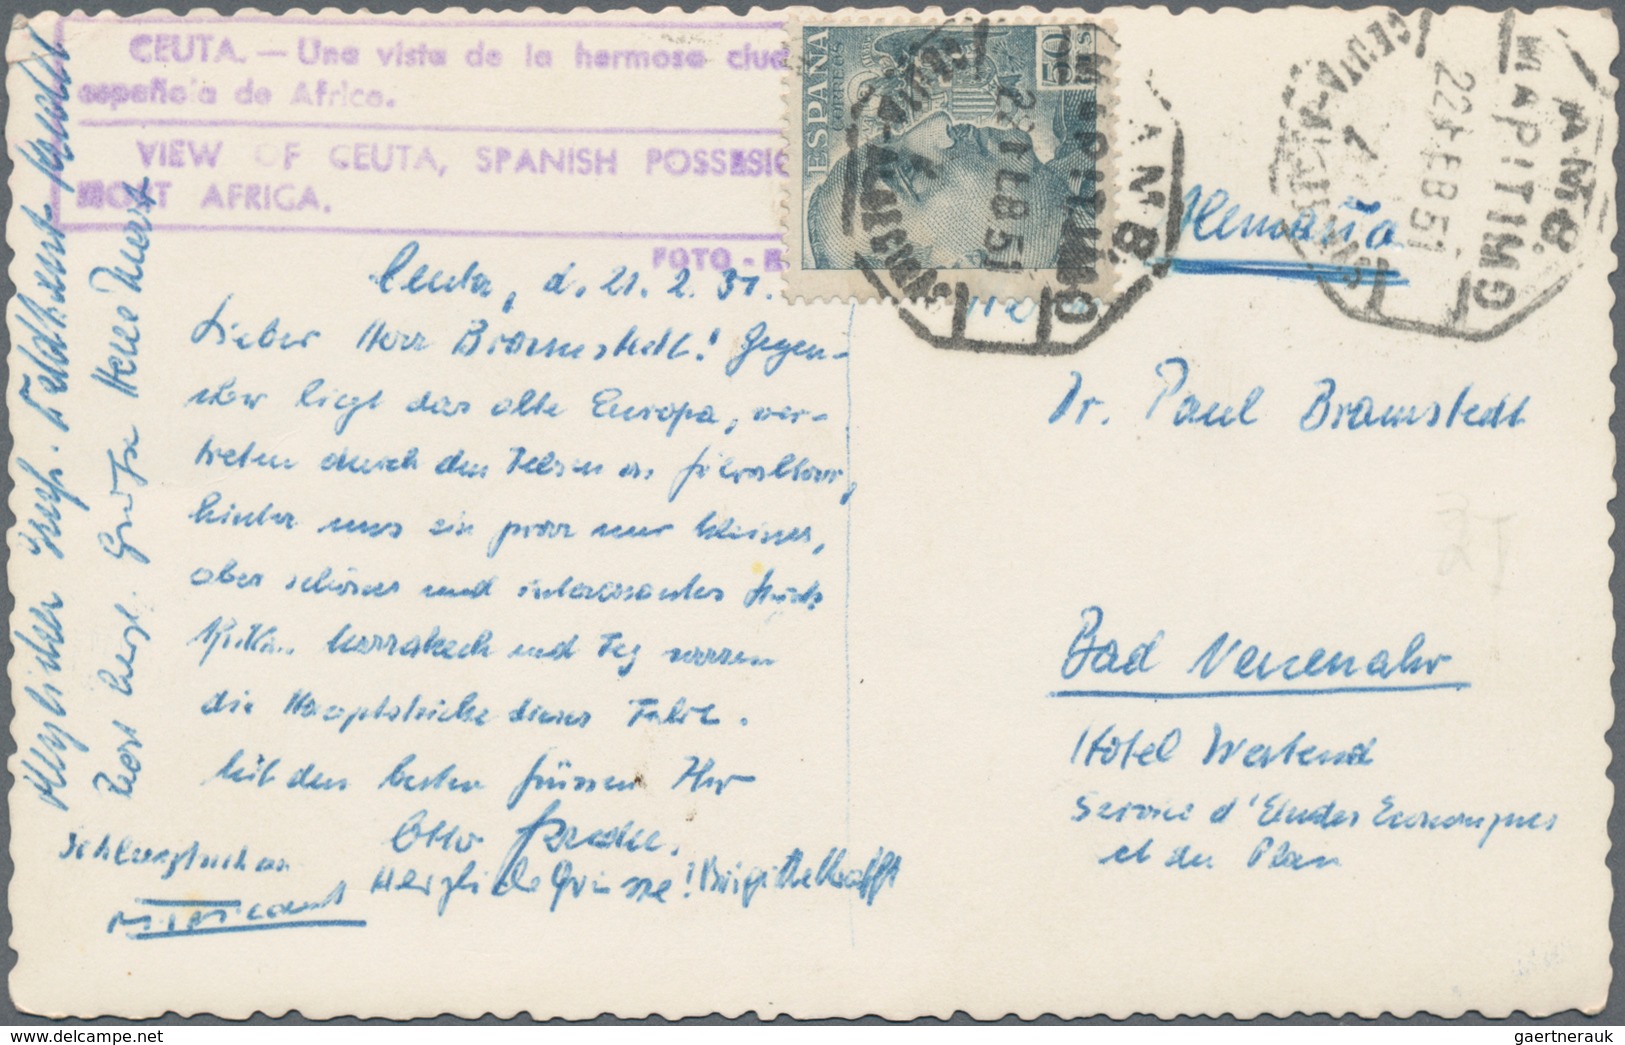 CEUTA. — Una vista de la hermosa ciu
española de Africa.
VIEW OF CEUTA, SPANISH POSSESI
AFRICA.
FOTO -
ESPAÑA
CORREOS
50
CEUTA
22 FEB 51
MARITIMO
AMB.
CEUTA
22 FEB 51
MARITIMO
AMB.
Alemaña
Ceuta, d. 21. 2. 51.
Lieber Herr Bramstedt! Gegen-
über liegt das alte Europa, ver-
treten durch den Felsen von Gibraltar,
hinter uns ein zwar nur kleines,
aber schönes und interessantes Stück
Afrika. Marrakech und Feg waren
die Hauptstriche dieser Fahrt.
Mit den besten Grüssen Ihr
Otto
Herzliche Grüsse! Brigitte
Herzlichen
herzl. Grüße
Dr. Paul Bramstedt
Bad Neuenahr
Hotel Westend
Service d'Etudes Economiques
et du Plan
gaertnerauk